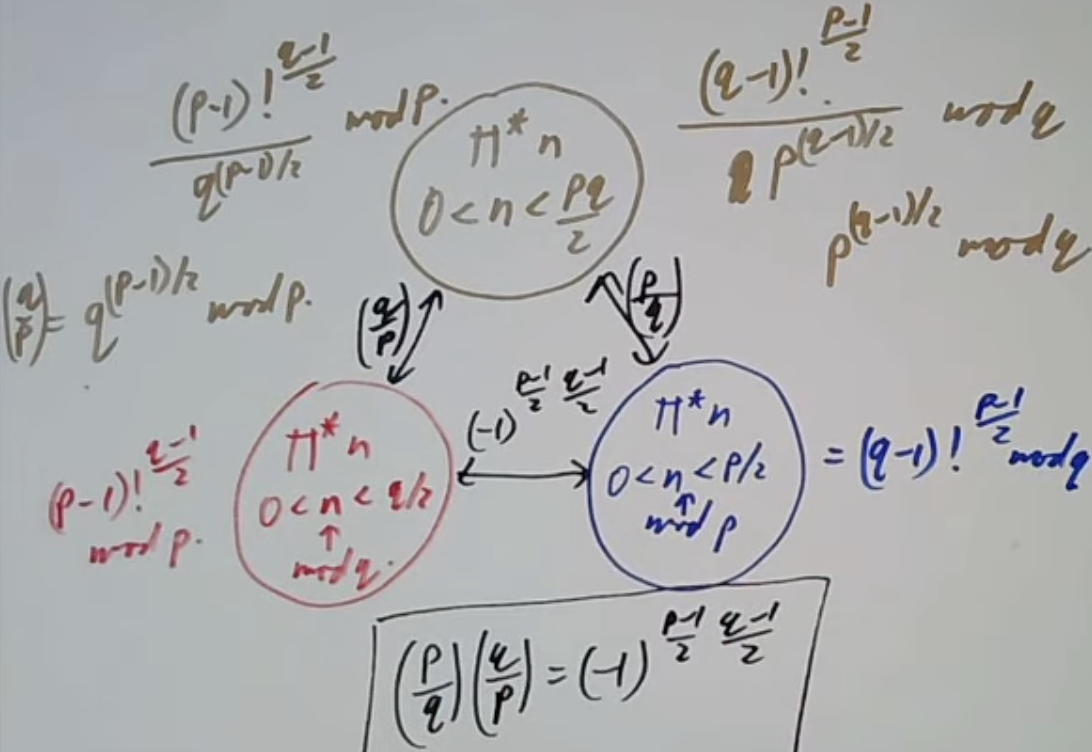 (p-1)!^{\frac{q-1}{2}} / q^{(p-1)/2} mod p.
Π* n
0 < n < \frac{pq}{2}
(q-1)!^{\frac{p-1}{2}} / p^{(q-1)/2} mod q
p^{(q-1)/2} mod q
(\frac{q}{p}) = q^{(p-1)/2} mod p.
(\frac{q}{p})
(\frac{p}{q})
(p-1)!^{\frac{q-1}{2}}
mod p.
Π* n
0 < n < q/2
↑
mod q.
(-1)^{\frac{p-1}{2} \frac{q-1}{2}}
Π* n
0 < n < p/2
↑
mod p
= (q-1)!^{\frac{p-1}{2}} mod q
(\frac{p}{q}) (\frac{q}{p}) = (-1)^{\frac{p-1}{2} \frac{q-1}{2}}